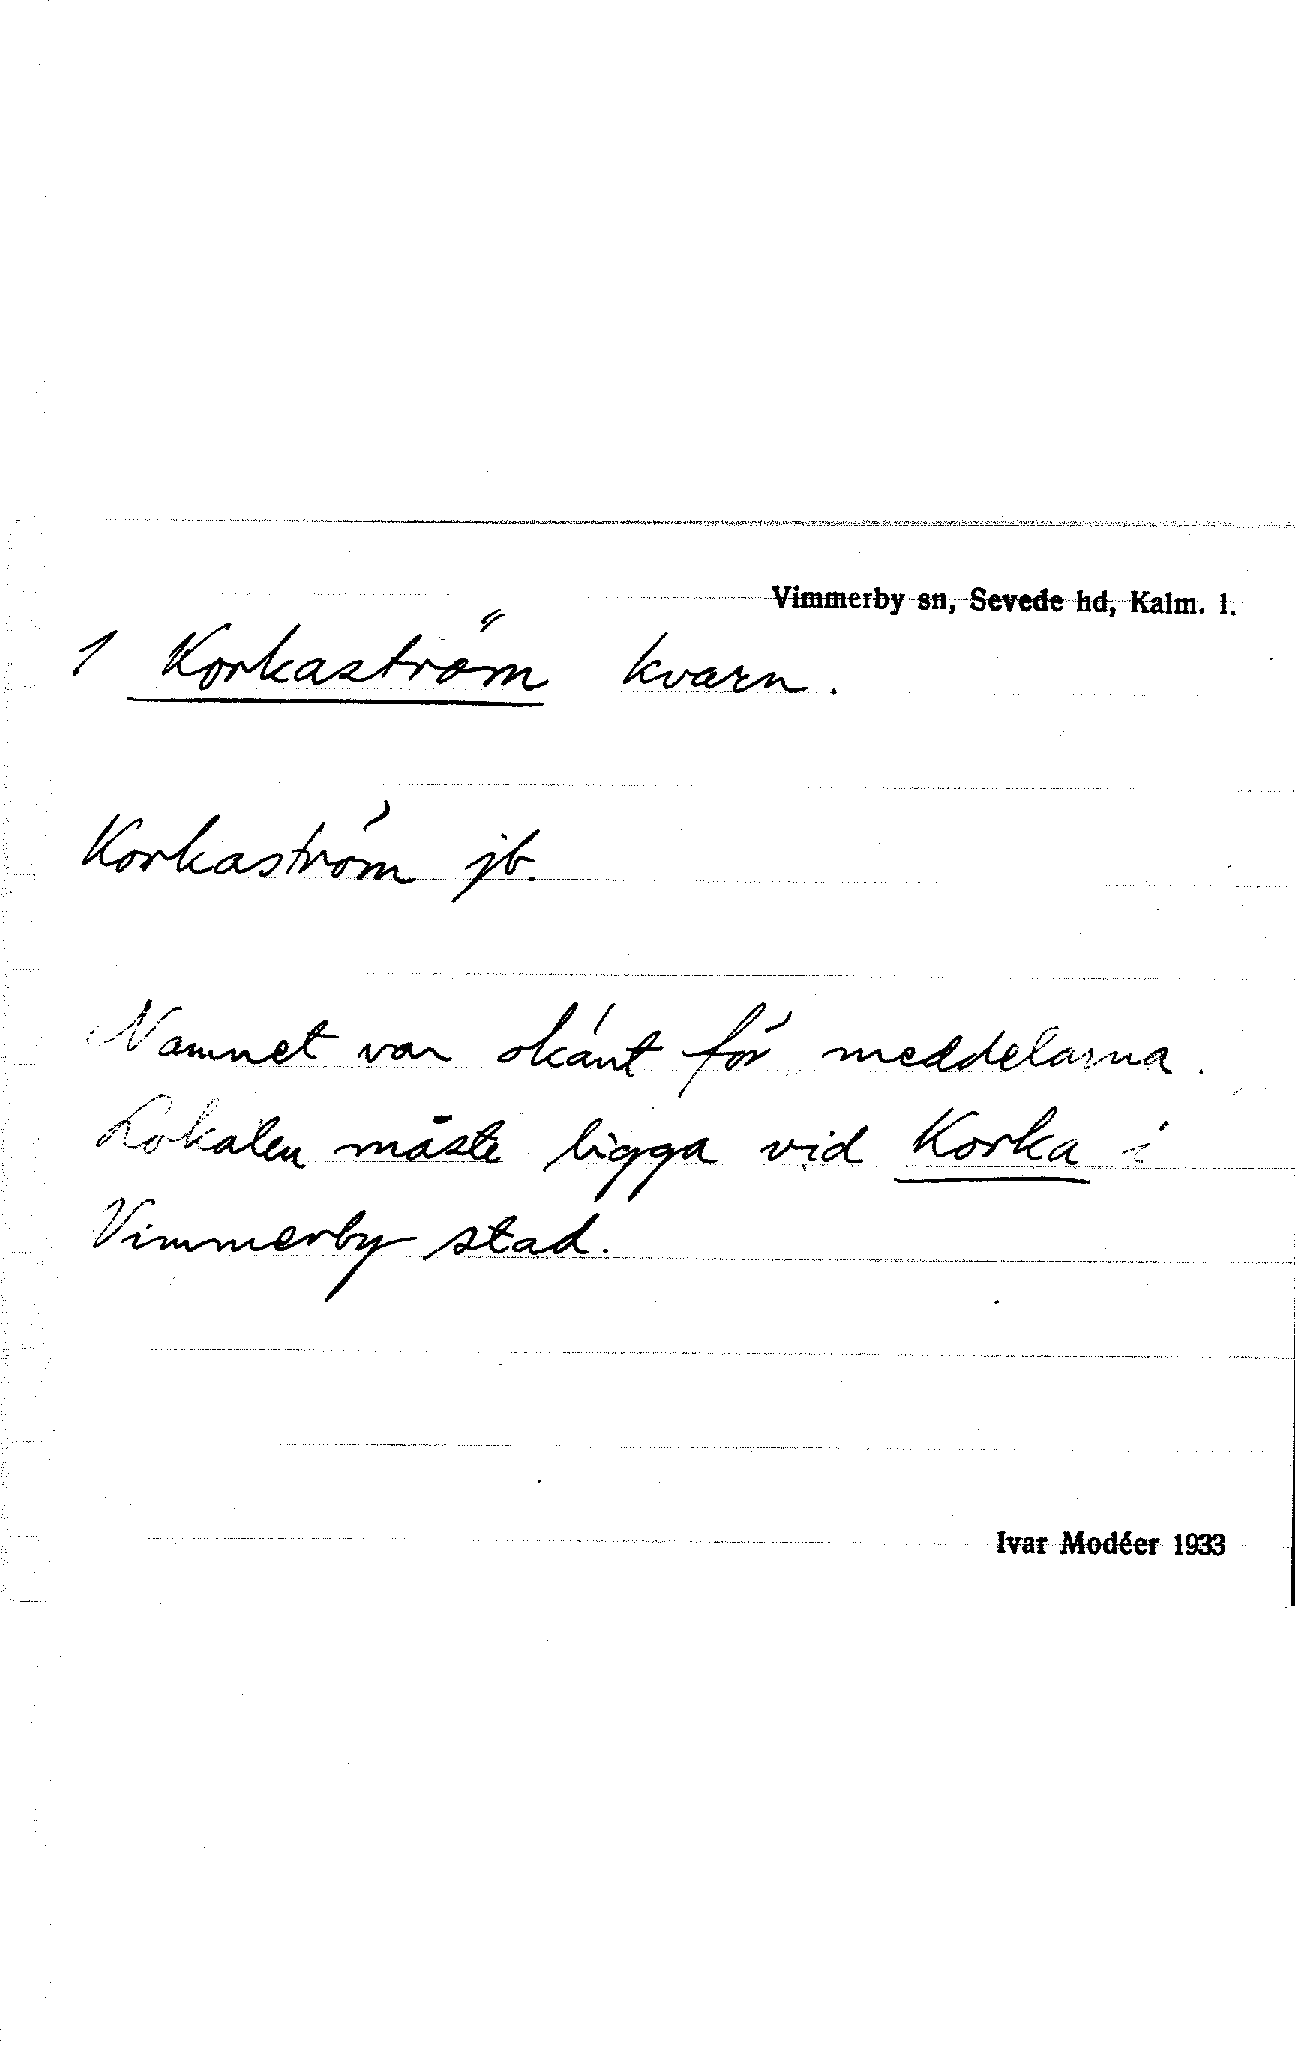 Vimmerby sn, Sevede hd, Kalm. l.
1 Korkaström kvarn.
Korkaström jb.
Namnet var okänt för meddelarna.
Lokalen måste ligga vid Korka i
Vimmerby stad.
Ivar Modéer 1933